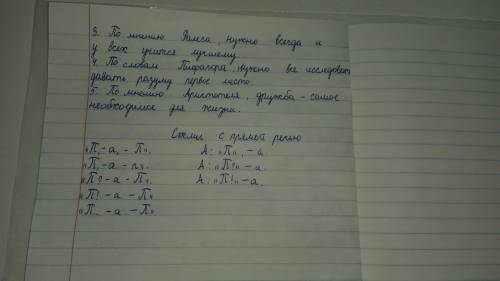 3. По мнению Фалеса, нужно всегда и
у всех учится лучшему.
4. По словам Пифагора, нужно все исследовать
давать разуму первые место.
5. По мнению Аристотеля, дружба - самое
необходимое для жизни.
Схемы с прямой речью
«П, - а, - П». А: «П», - а.
«П, - а - п». А: «П?» - а.
«П? - а - П». А: «П!» - а.
«П! - а - П»
«П... - а. - П».